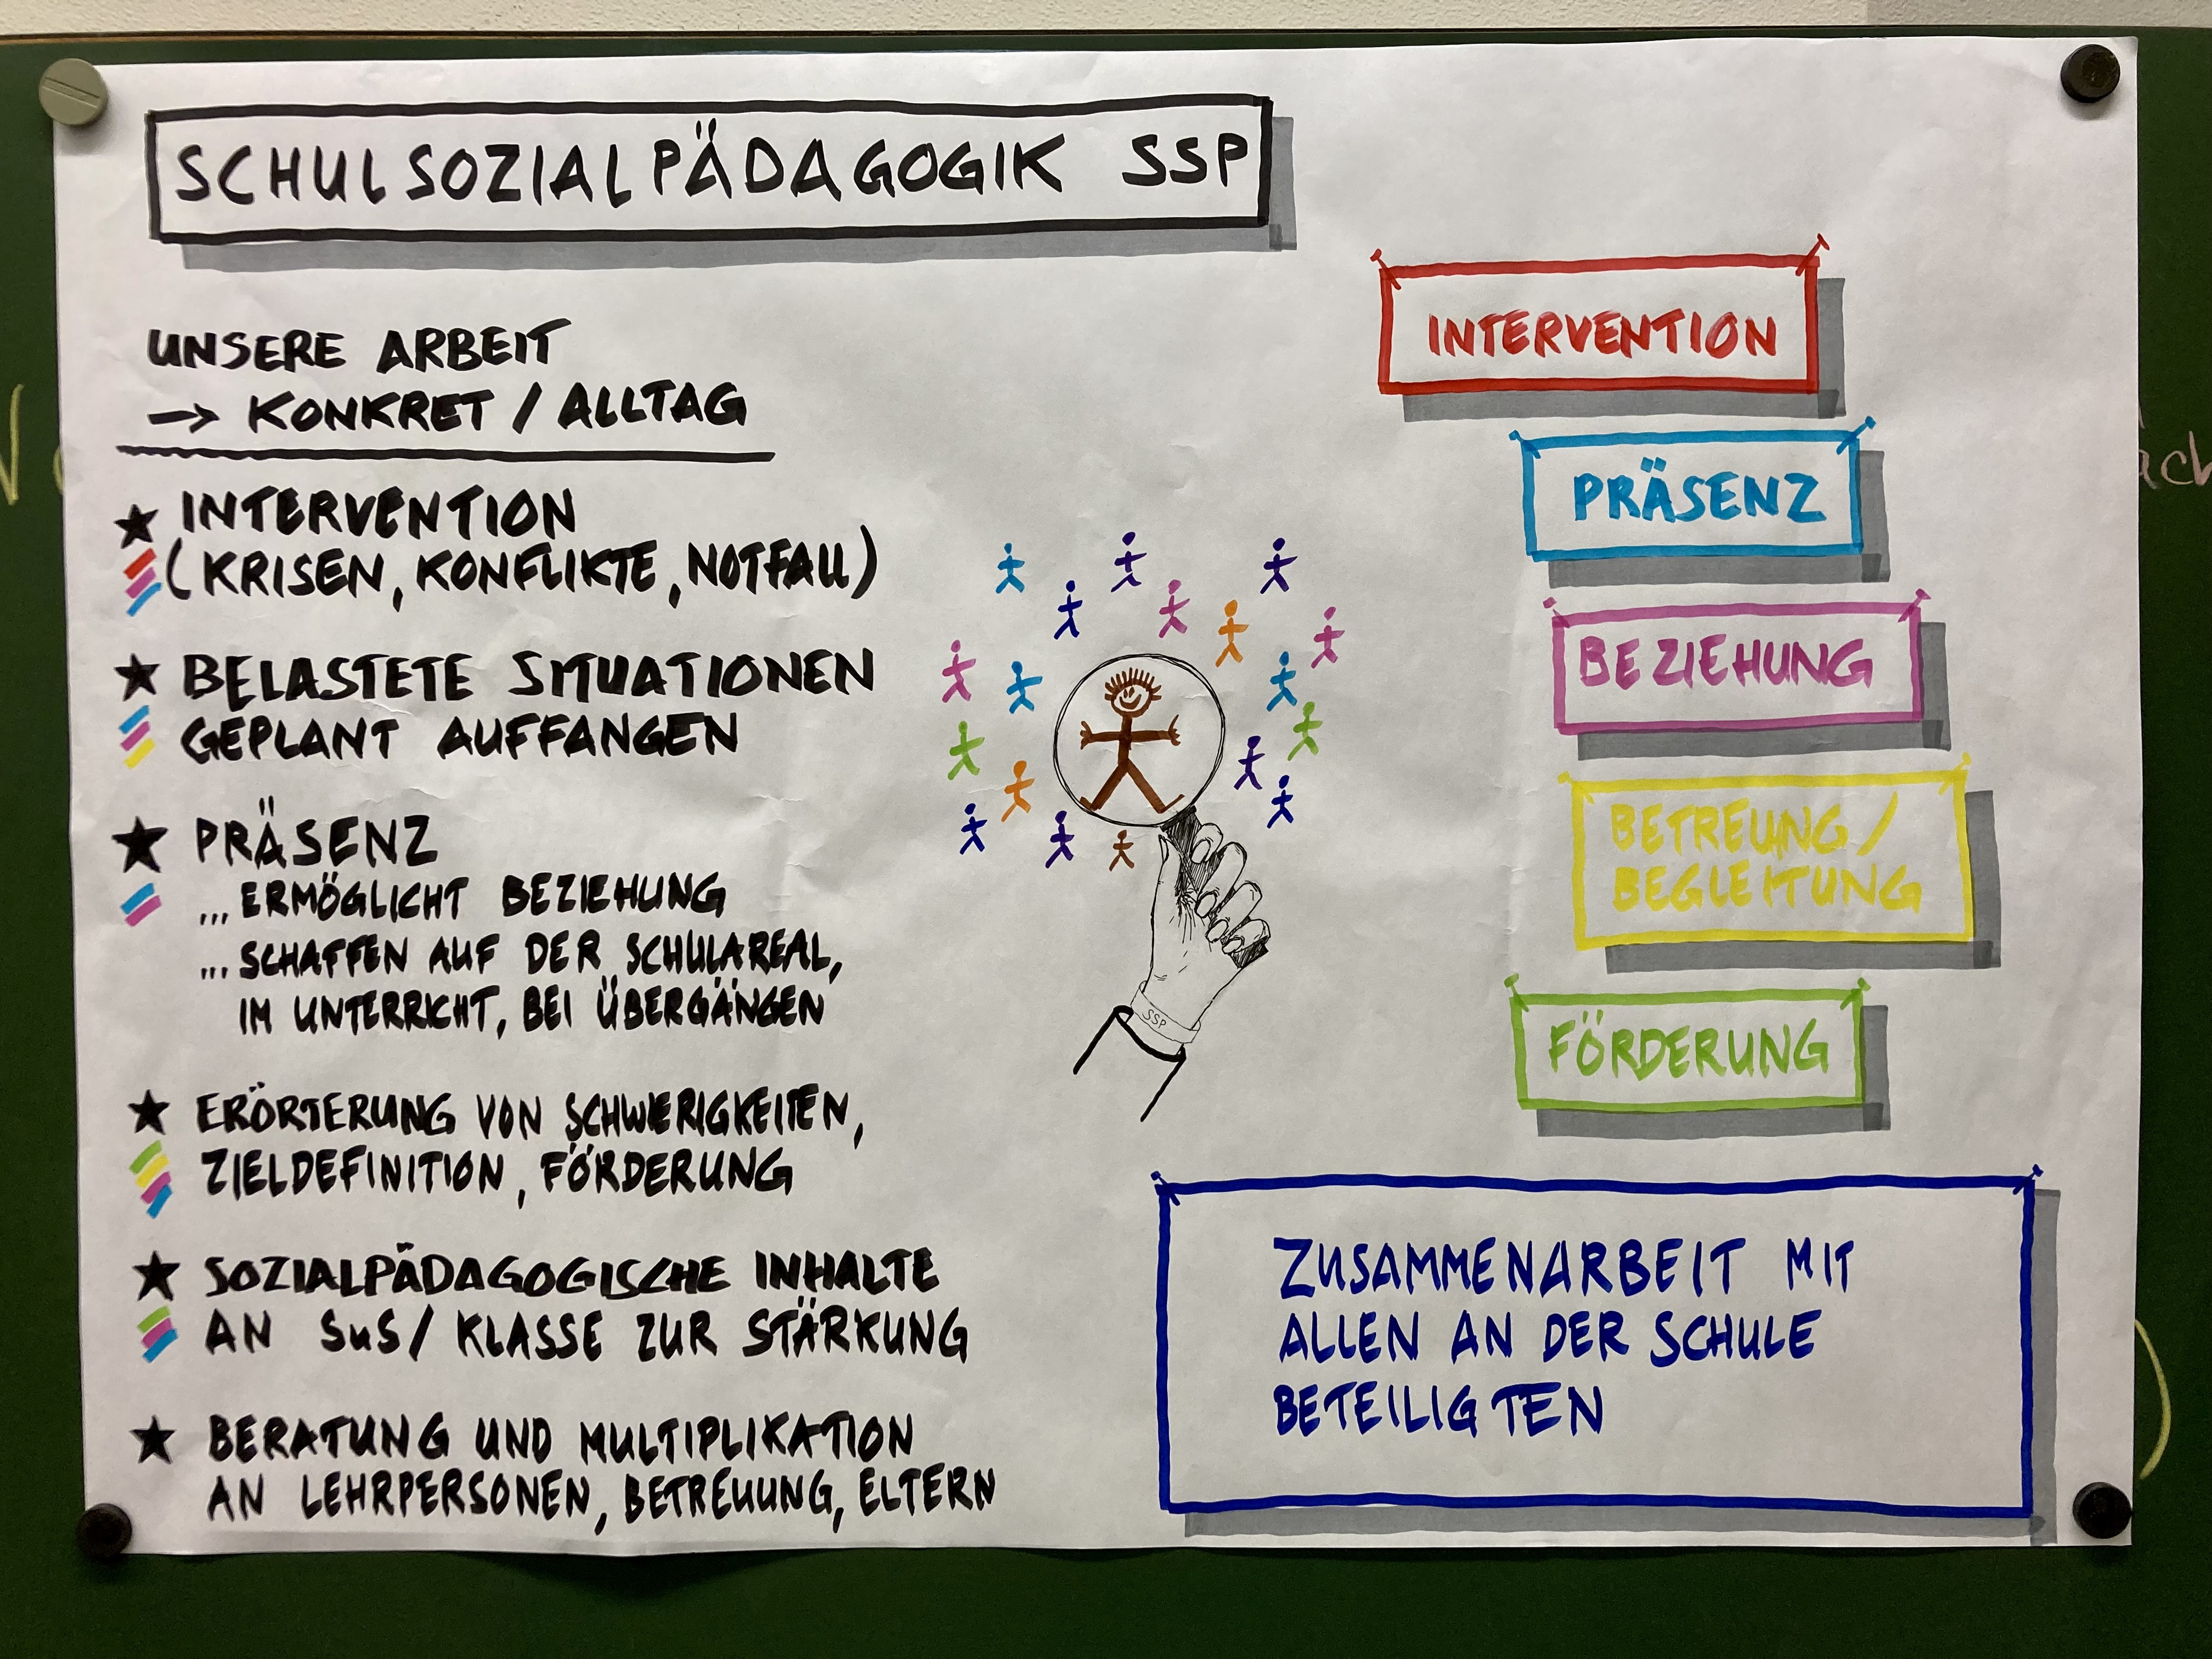 SCHULSOZIALPÄDAGOGIK SSP
UNSERE ARBEIT
→ KONKRET / ALLTAG
★ INTERVENTION
(KRISEN, KONFLIKTE, NOTFALL)
★ BELASTETE SITUATIONEN
GEPLANT AUFFANGEN
★ PRÄSENZ
... ERMÖGLICHT BEZIEHUNG
... SCHAFFEN AUF DER SCHULAREAL,
IM UNTERRICHT, BEI ÜBERGÄNGEN
★ ERÖRTERUNG VON SCHWIERIGKEITEN,
ZIELDEFINITION, FÖRDERUNG
★ SOZIALPÄDAGOGISCHE INHALTE
AN SuS / KLASSE ZUR STÄRKUNG
★ BERATUNG UND MULTIPLIKATION
AN LEHRPERSONEN, BETREUUNG, ELTERN
SSP
INTERVENTION
PRÄSENZ
BEZIEHUNG
BETREUUNG /
BEGLEITUNG
FÖRDERUNG
ZUSAMMENARBEIT MIT
ALLEN AN DER SCHULE
BETEILIGTEN